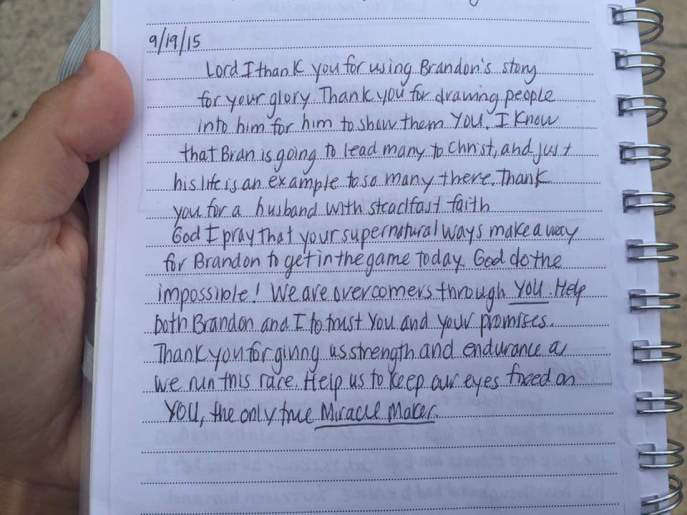 9/19/15
Lord I thank you for using Brandon's story
for your glory. Thank you for drawing people
into him for him to show them YOU. I know
that Bran is going to lead many to Christ, and just
his life is an example to so many there. Thank
you for a husband with steadfast faith
God I pray that your supernatural ways make a way
for Brandon to get in the game today. God do the
impossible! We are overcomers through YOU. Help
both Brandon and I to trust You and your promises.
Thank you for giving us strength and endurance as
we run this race. Help us to keep our eyes fixed on
YOU, the only true Miracle Maker.